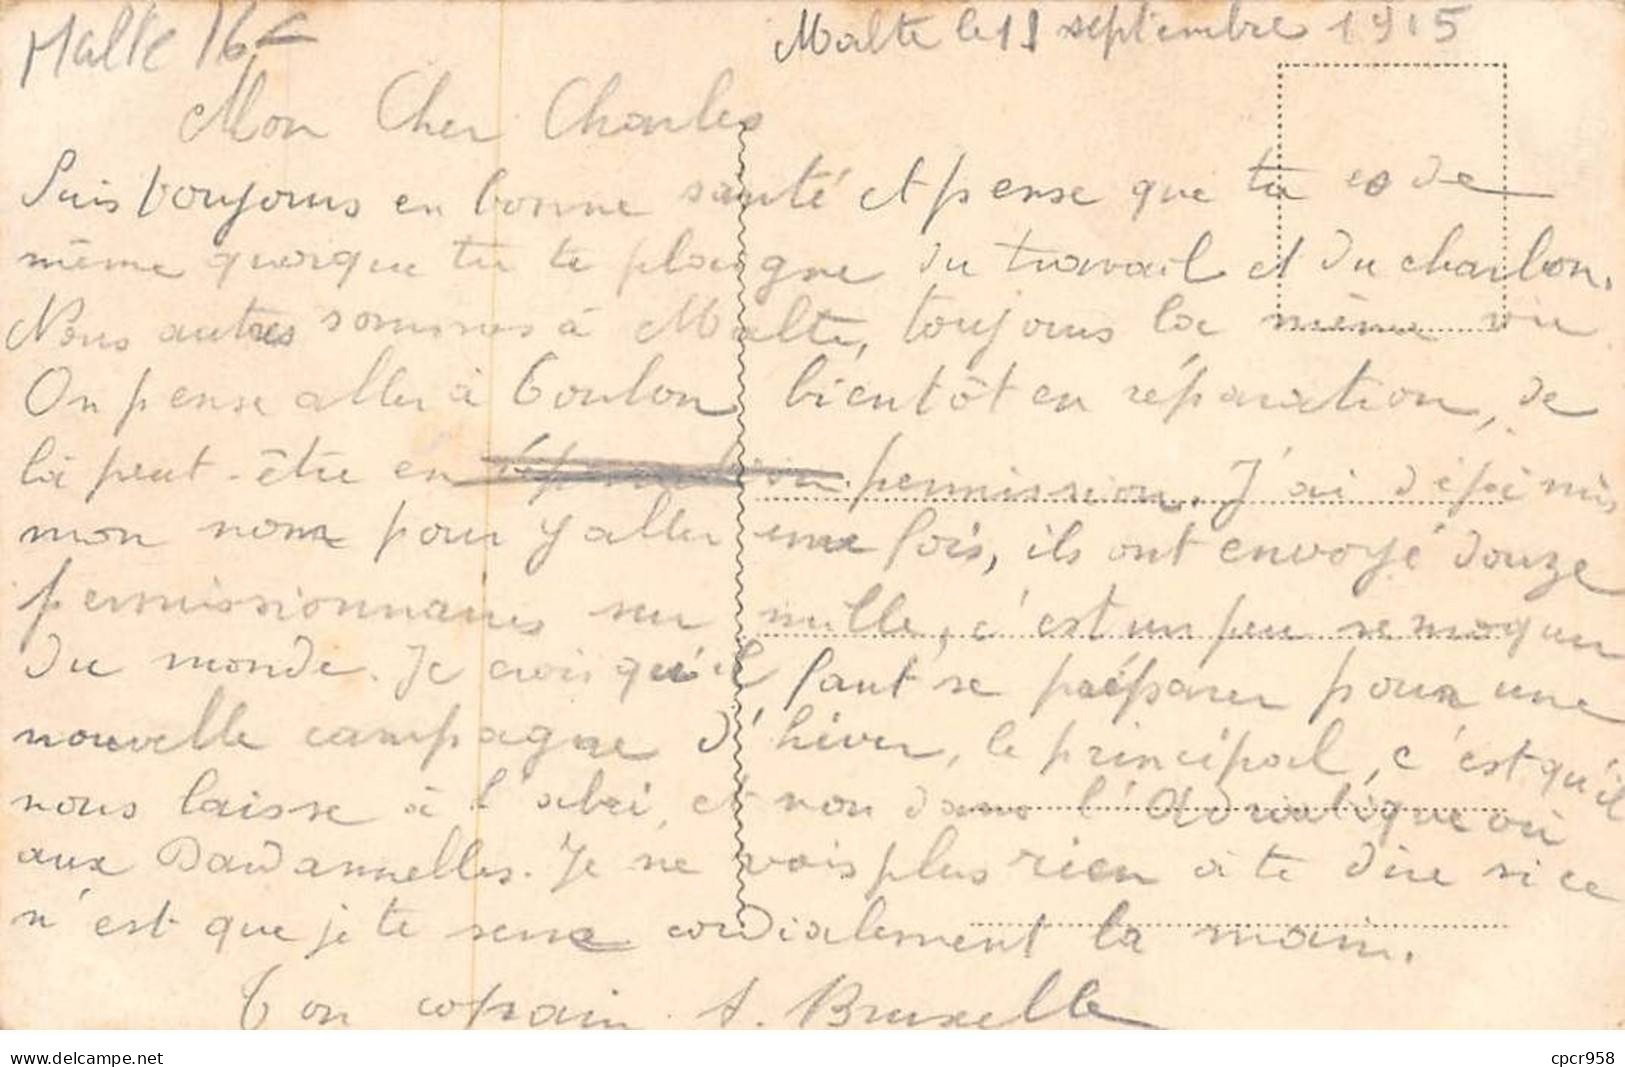 Malte 16c
Malte le 11 septembre 1915
Mon Cher Charles
Suis toujours en bonne santé et pense que tu es de
même quoique tu te plaigne du travail et du charbon.
Nous autres sommes à Malte, toujours la même vie
On pense aller à Toulon bientôt en réparation, de
là peut-être en réparation permission. J'ai déjà mis
mon nom pour y aller une fois, ils ont envoyé douze
permissionnaires sur mille, c'est un peu se moquer
du monde. Je crois qu'il faut se préparer pour une
nouvelle campagne d'hiver, le principal, c'est qu'il
nous laisse à l'abri, et non dans l'Adriatique ou
aux Dardannelles. Je ne vois plus rien à te dire si ce
n'est que je te serre cordialement la main.
Ton copain A. Bruxelle
www.delcampe.net
cpcr958